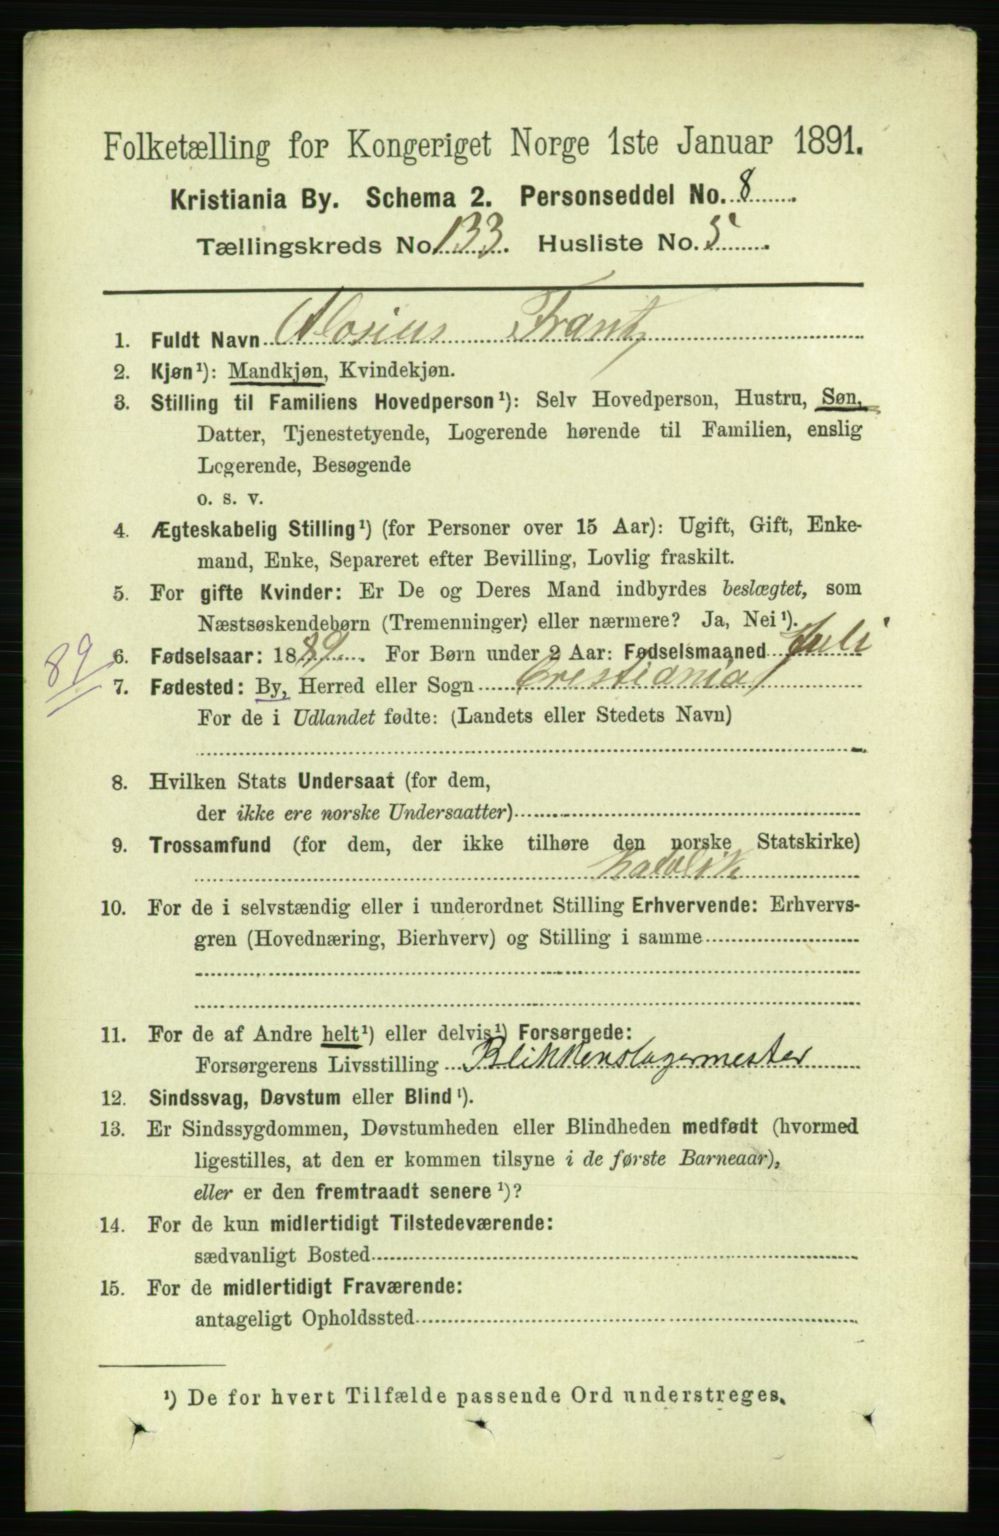 Folketælling for Kongeriget Norge 1ste Januar 1891.
Kristiania By. Schema 2. Personseddel No. 8
Tællingskreds No. 133. Husliste No. 5
1. Fuldt Navn Alosius Frantz
2. Kjøn¹): Mandkjøn, Kvindekjøn.
3. Stilling til Familiens Hovedperson¹): Selv Hovedperson, Hustru, Søn,
Datter, Tjenestetyende, Logerende hørende til Familien, enslig
Logerende, Besøgende
o. s. v.
4. Ægteskabelig Stilling¹) (for Personer over 15 Aar): Ugift, Gift, Enke-
mand, Enke, Separeret efter Bevilling, Lovlig fraskilt.
5. For gifte Kvinder: Er De og Deres Mand indbyrdes beslægtet, som
Næstsøskendebørn (Tremenninger) eller nærmere? Ja, Nei¹).
89 6. Fødselsaar: 1889. For Børn under 2 Aar: Fødselsmaaned Juli
7. Fødested: By, Herred eller Sogn Cristiania
For de i Udlandet fødte: (Landets eller Stedets Navn)
8. Hvilken Stats Undersaat (for dem,
der ikke ere norske Undersaatter)
9. Trossamfund (for dem, der ikke tilhøre den norske Statskirke)
katolik
10. For de i selvstændig eller i underordnet Stilling Erhvervende: Erhvervs-
gren (Hovednæring, Bierhverv) og Stilling i samme
11. For de af Andre helt¹) eller delvis¹) Forsørgede:
Forsørgerens Livsstilling Blikkenslagermester
12. Sindssvag, Døvstum eller Blind¹).
13. Er Sindssygdommen, Døvstumheden eller Blindheden medfødt (hvormed
ligestilles, at den er kommen tilsyne i de første Barneaar),
eller er den fremtraadt senere¹)?
14. For de kun midlertidigt Tilstedeværende:
sædvanligt Bosted
15. For de midlertidigt Fraværende:
antageligt Opholdssted
¹) De for hvert Tilfælde passende Ord understreges.